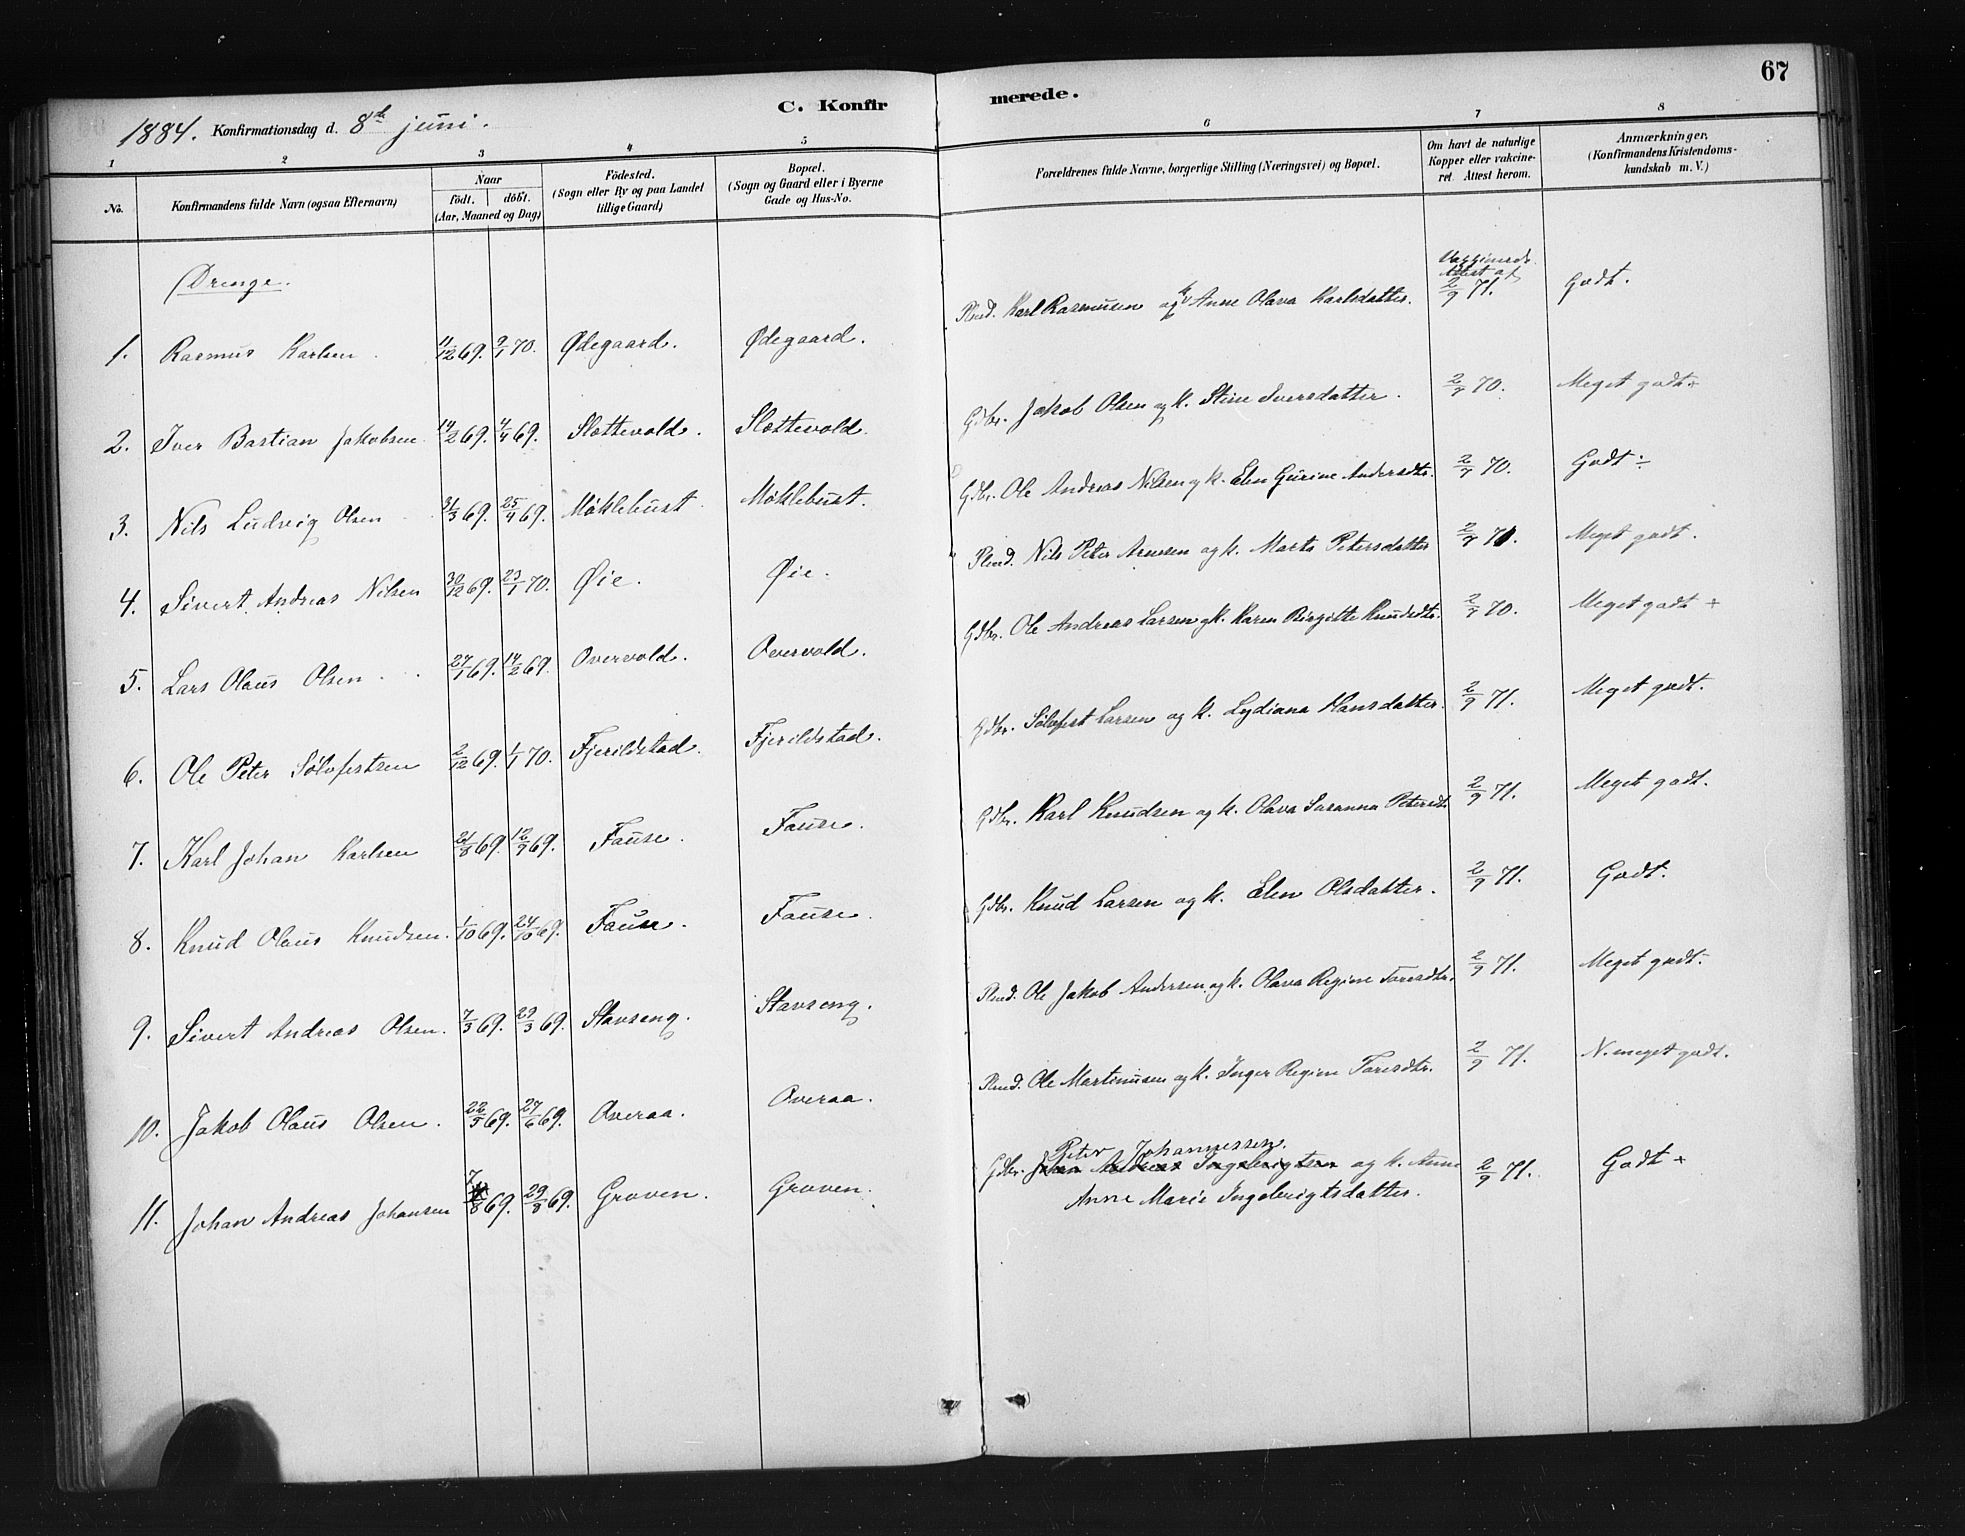 67
C. Konfirmerede.
1884. Konfirmationsdag d. 8de juni.
1 2 3 4 5 6 7 8
No. Konfirmandens fulde Navn (ogsaa Efternavn) Naar født. døbt. (Aar, Maaned og Dag) Födested. (Sogn eller By og paa Landet tillige Gaard) Bopæl. (Sogn og Gaard eller i Byerne Gade og Hus-No. Forældrenes fulde Navne, borgerlige Stilling (Næringsvei) og Bopæl. Om havt de naturlige Kopper eller vakcineret. Attest herom. Anmærkninger. (Konfirmandens Kristendomskundskab m. V.)
Drenge.
1. Rasmus Karlsen. 11/12 69. 9/1 70. Ødegaard. Ødegaard. Plad. Karl Rasmusen og Anne Olava Karlsdatter. Attest af 2/9 71. Godt.
2. Iver Bastian Jakobsen. 14/2 69. 4/4 69. Slottevold. Slottevold. Gdbr. Jakob Olsen og k. Stine Iversdatter. 2/9 70. Meget godt÷
3. Nils Ludvig Olsen 31/3 69. 25/4 69. Møklebust. Møklebust. Gdbr. Ole Andreas Nilsen og k. Elen Gurine Andersdtr. 2/9 70. Godt÷
4. Sivert Andreas Nilsen 30/12 69. 23/1 70. Øie. Øie. Plad. Nils Peter Arnesen og k. Marte Petersdatter 2/9 71. Meget godt.
5. Lars Olaus Olsen 27/1 69. 14/2 69. Overvold. Overvold. Gdbr. Ole Andreas Larsen og k. Karen Birgitte Knudsdtr. 2/9 70. Meget godt +
6. Ole Peter Sølvfestsen 2/12 69. 1/1 70. Fjerildstad. Fjerildstad. Gdbr. Sølvfest Larsen og k. Lydiana Hansdatter. 2/9 71. Meget godt.
7. Karl Johan Karlsen 21/8 69. 12/9 69. Fause. Fause. Gdbr. Karl Knudsen og k. Olava Susanna Petersdtr. 2/9 71. Meget godt.
8. Knud Olaus Knudsen. 1/10 69. 24/10 69. Fause. Fause. Gdbr. Knud Larsen og k. Elen Olsdatter. 2/9 71. Godt.
9. Sivert Andreas Olsen. 7/3 69. 29/3 69. Stavseng. Stavseng. Plad. Ole Jakob Andersen og k. Olava Regine Taresdtr. 2/9 71. Meget godt÷
10. Jakob Olaus Olsen. 22/5 69. 27/6 69. Overaa. Overaa. Plad. Ole Martinusen og k. Inger Regine Taresdtr. 2/9 71. N. meget godt.
11. Johan Andreas Johansen 7/8 69. 29/8 69. Groven. Groven. Gdbr. Johan Andreas Ingebrigtsen Peter Johannessen. og k. Anne Anne Marie Ingebrigtsdatter. 2/9 71. Godt +